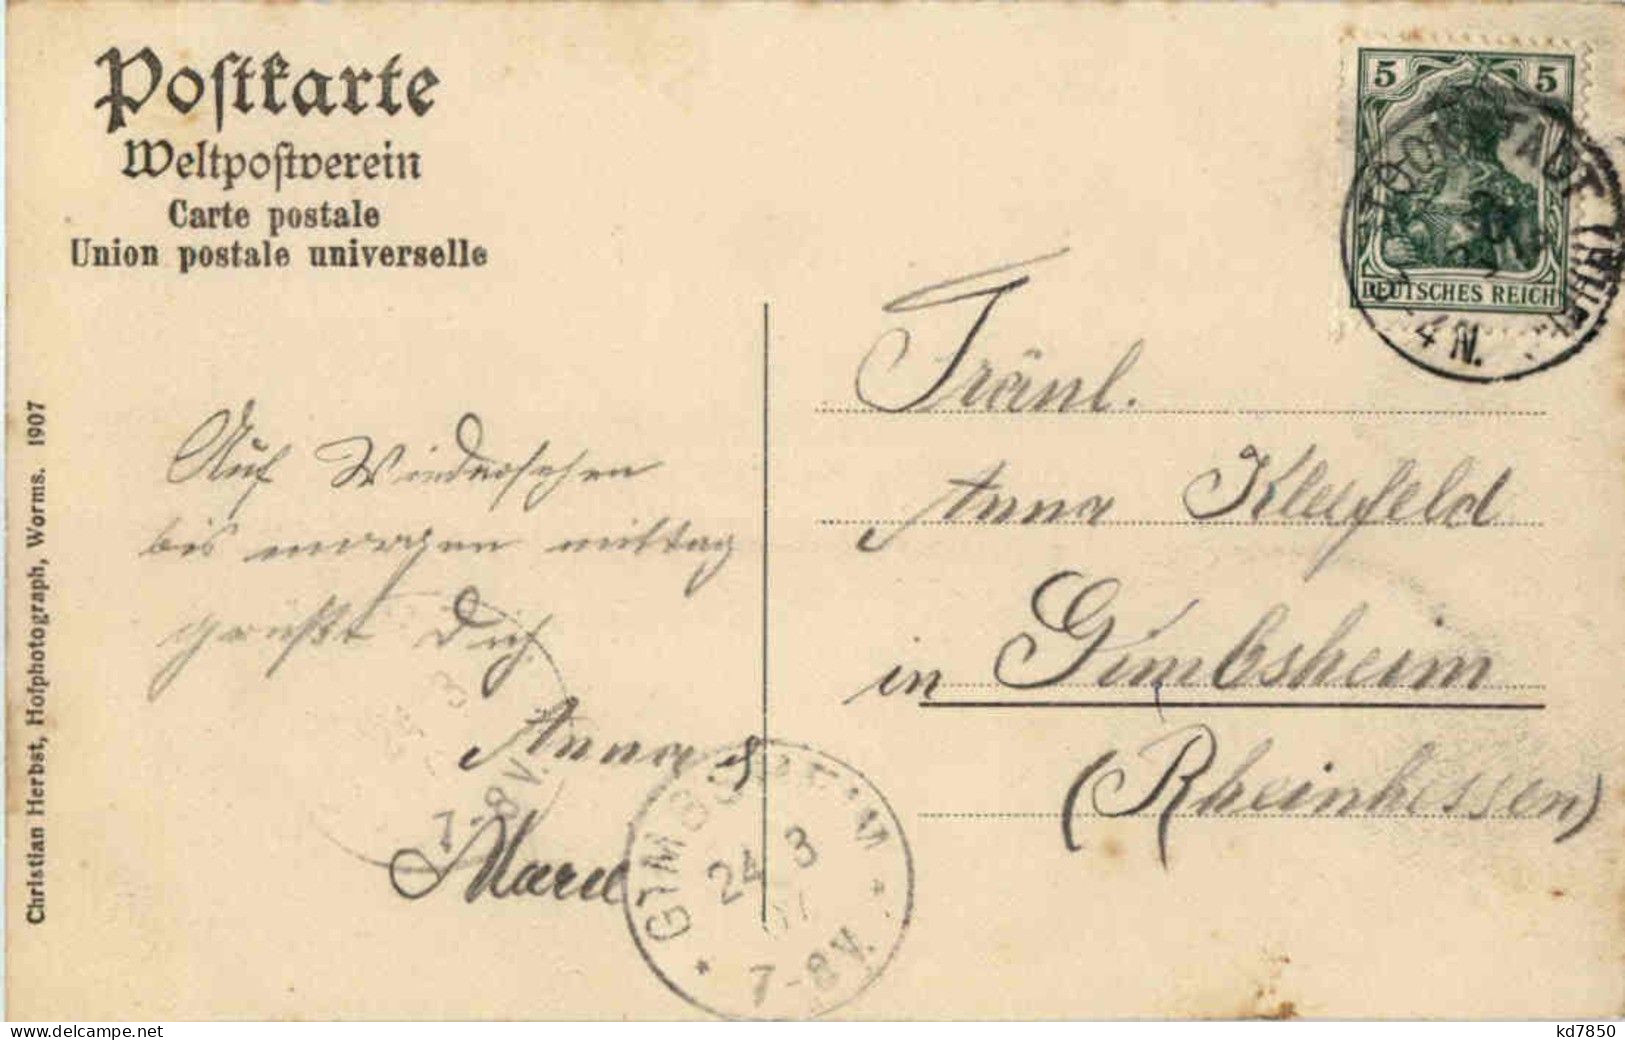 Postkarte
Weltpostverein
Carte postale
Union postale universelle
5 5
DEUTSCHES REICH
STADT
4 N.
Fräul.
Anna Kleefeld
in Gimbsheim
(Rheinhessen)
Auf Wiedersehen
bis morgen mittag
grüßt Dich
Anna &
Marie
GIMBSHEIM
24 3
07
7-8 V.
24 3
7-8 V.
Christian Herbst, Hofphotograph, Worms. 1907
www.delcampe.net
kd7850